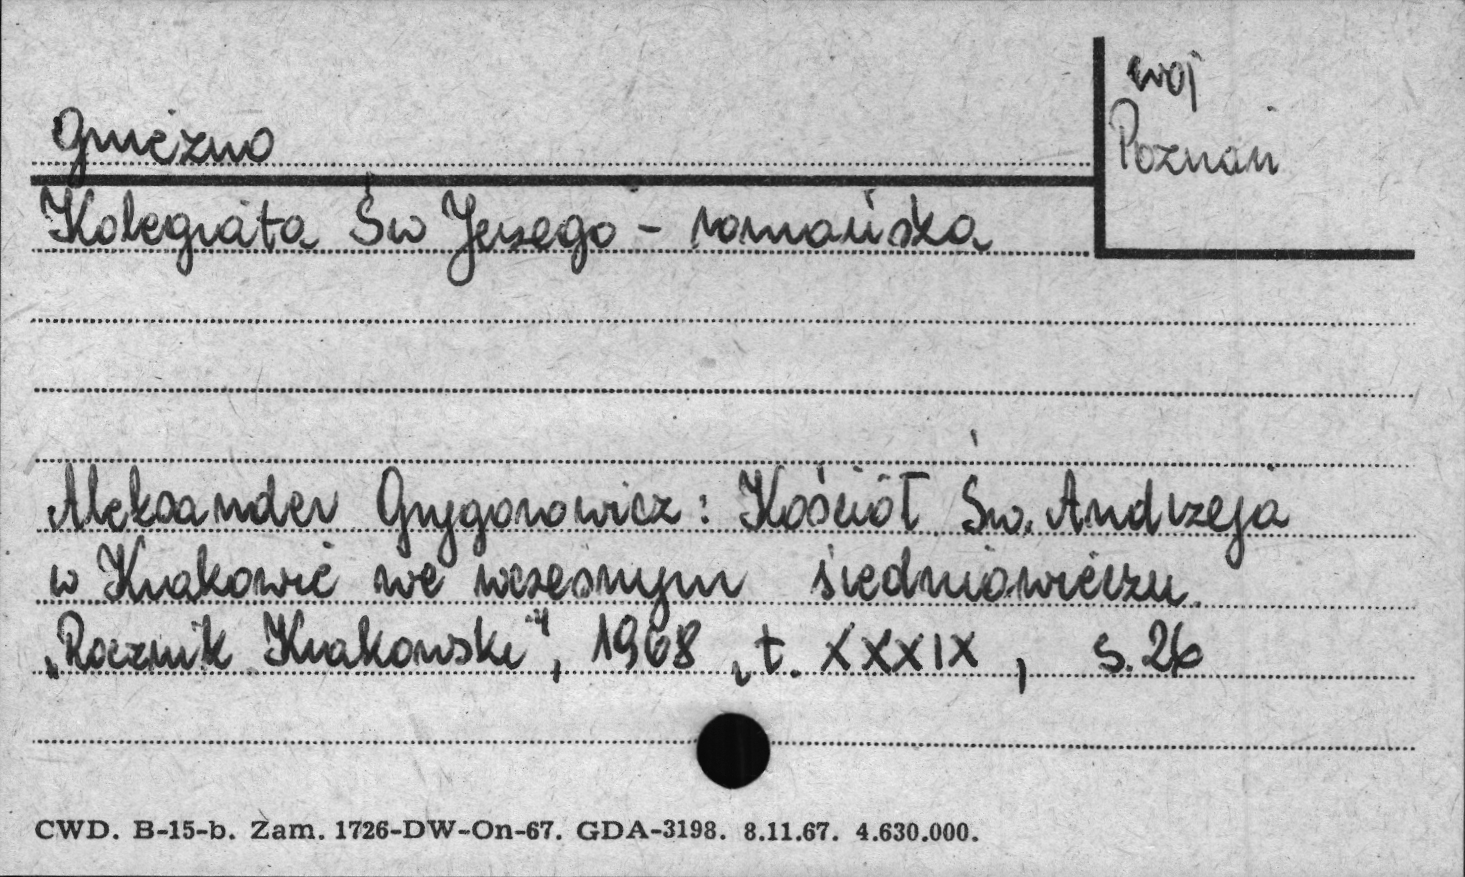 Gniezno
woj
Poznań
Kolegiata Św Jerzego - romańska
Aleksander Grygorowicz: Kościół Św. Andrzeja
w Krakowie we wczesnym średniowieczu.
„Rocznik Krakowski", 1968, t. XXXIX, s. 26
CWD. B-15-b. Zam. 1726-DW-On-67. GDA-3198. 8.11.67. 4.630.000.